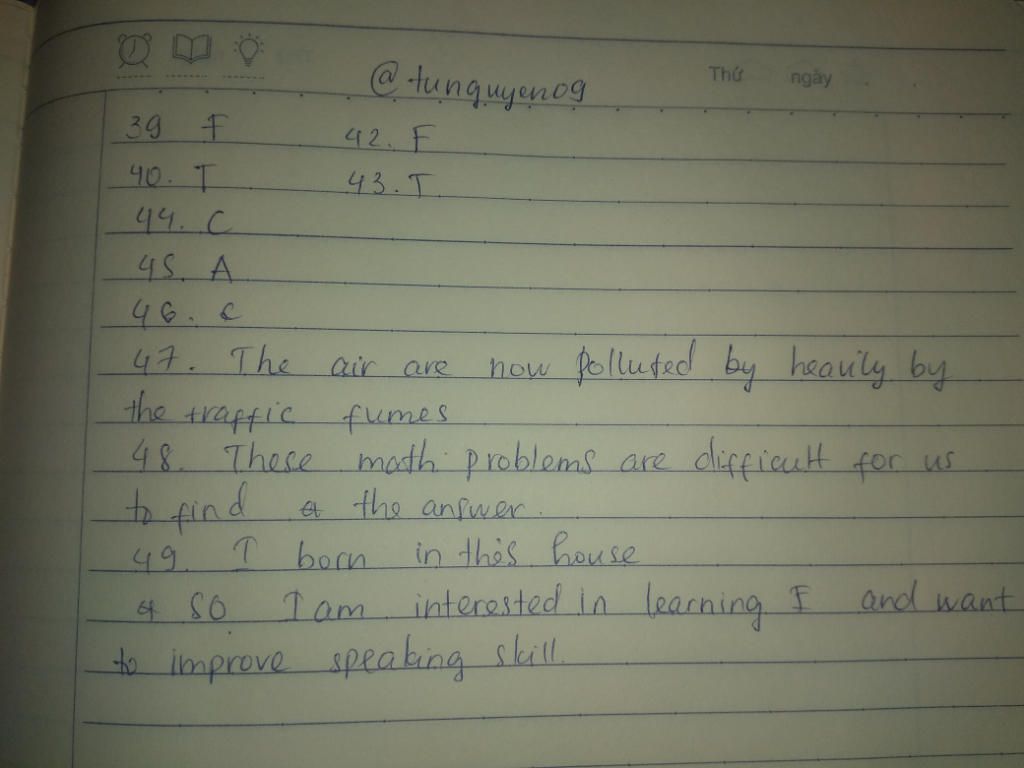 Thứ ngày
@tunguyen09
39 F 42. F
40. T 43. T
44. C
45. A
46. C
47. The air are now polluted by heavily by
the traffic fumes
48. These math problems are difficult for us
to find the answer.
49. I born in this house
50 I am interested in learning E and want
to improve speaking skill.